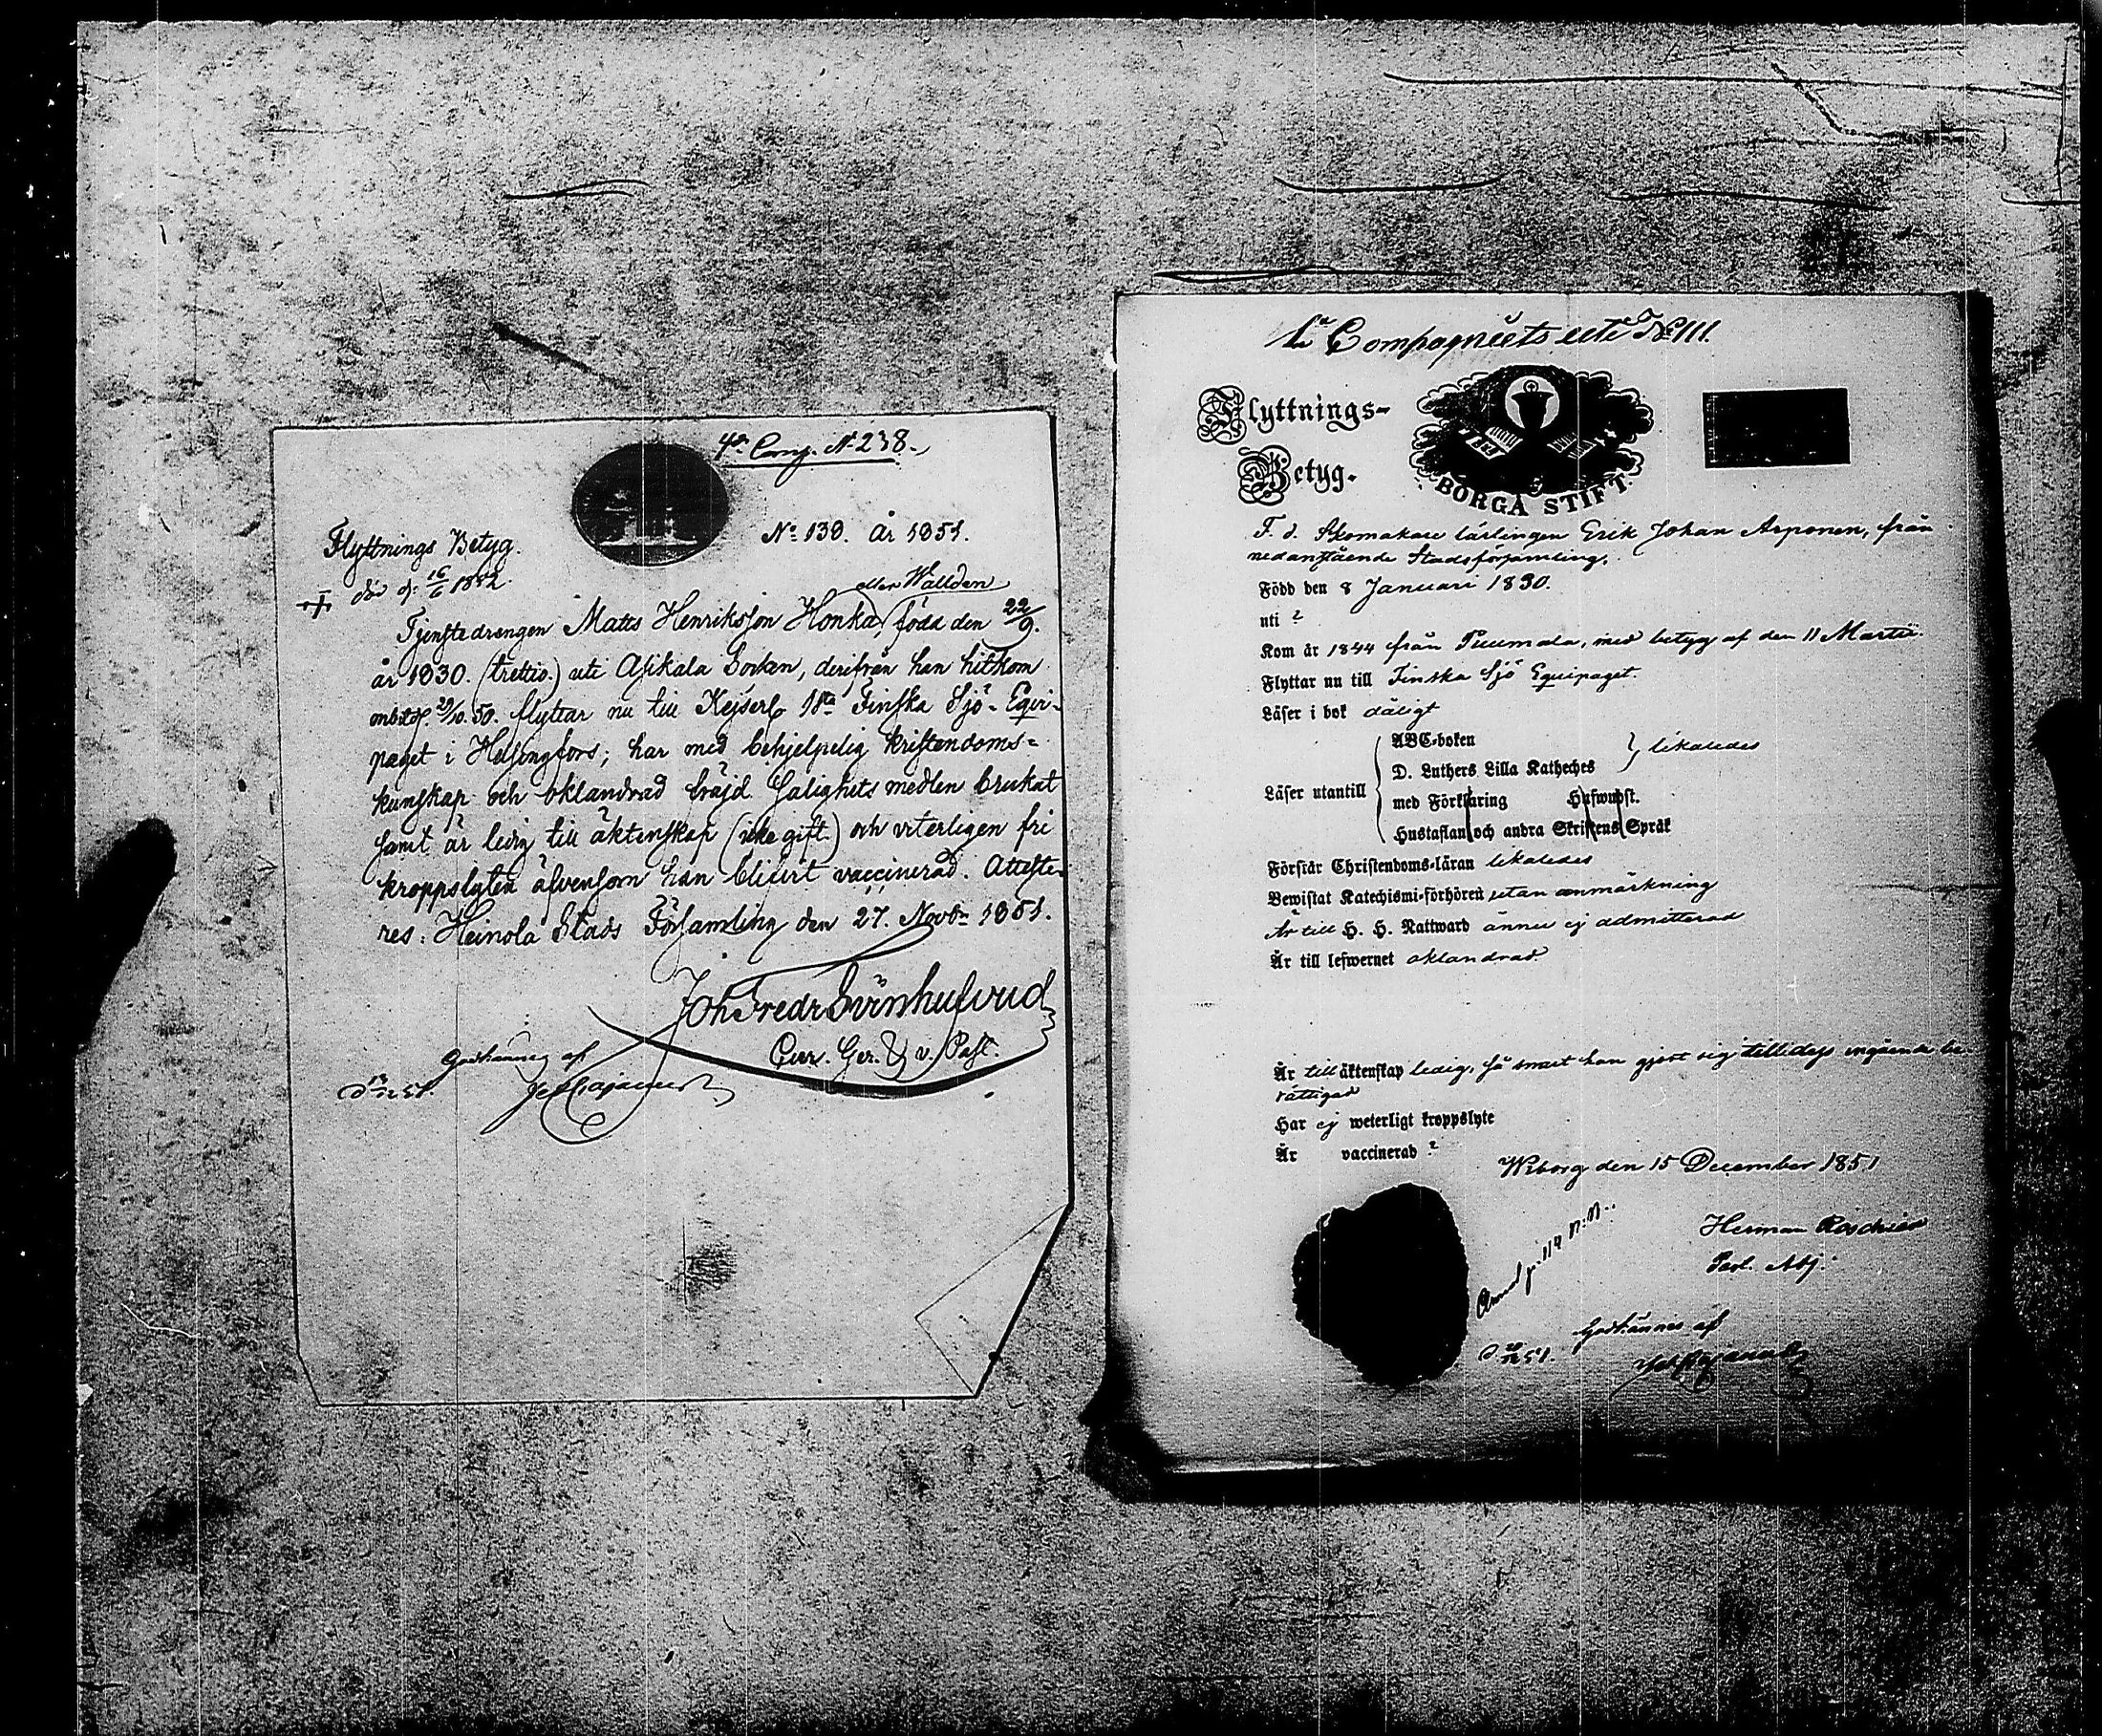 4de Comp. N 238.
No 130. År 1851.
Flyttnings Betyg.
död d: 16/6 1852.
eller Wallden
Tjenstedrengen Matts Henriksson Honka, född den 22/9.
år 1830. (trettio.) uti Asikala Socken, derifrån han hitkom
29/10. 50. flyttar nu till Kejserl 1sta Finska Sjö-Equi-
paget i Helsingfors; har med behjelpelig kristendoms-
kunskap och oklandrad fräjd Salighets medlen brukat
samt är ledig till äktenskap (icke gift.) och veterligen fri
kroppslyten äfvensom han blifvit vaccinerad. Atteste-
res: Heinola Stads Församling den 27. Novbr 1851.
Joh Fredr Svinhufvud
v. Past.
Godkännes af
d 13/12 51.
1a Compagniets rote No 111.
Flyttnings-
Betyg.
BORGÅ STIFT
F. d. Skomakare lärlingen Erik Johan Asponen, från
nedanstående Stadsförsamling.
Född den 8 Januari 1830.
uti ?
Kom år 1844 från Puumala, med betyg af den 11 Martii.
Flyttar nu till Finska Sjö Equipaget.
Läser i bok dåligt
Läser utantill
ABC-boken
D. Luthers Lilla Katheches
likaledes
med Förklaring Hufwudst.
Hustaflan och andra Skriftens Språk
Förstår Christendoms-läran likaledes
Bewistat Katechismi-förhören utan anmärkning
Är till H. H. Nattward ännu ej admitterad
Är till lefwernet oklandrad.
Är till äktenskap ledig, så snart han gjort sig till dess ingående be-
rättigad
Har ej weterligt kroppslyte
Är vaccinerad ?
Wiborg den 15 December 1851
Herman
Past. Adj.
Godkännes af
d. 20/12 51.